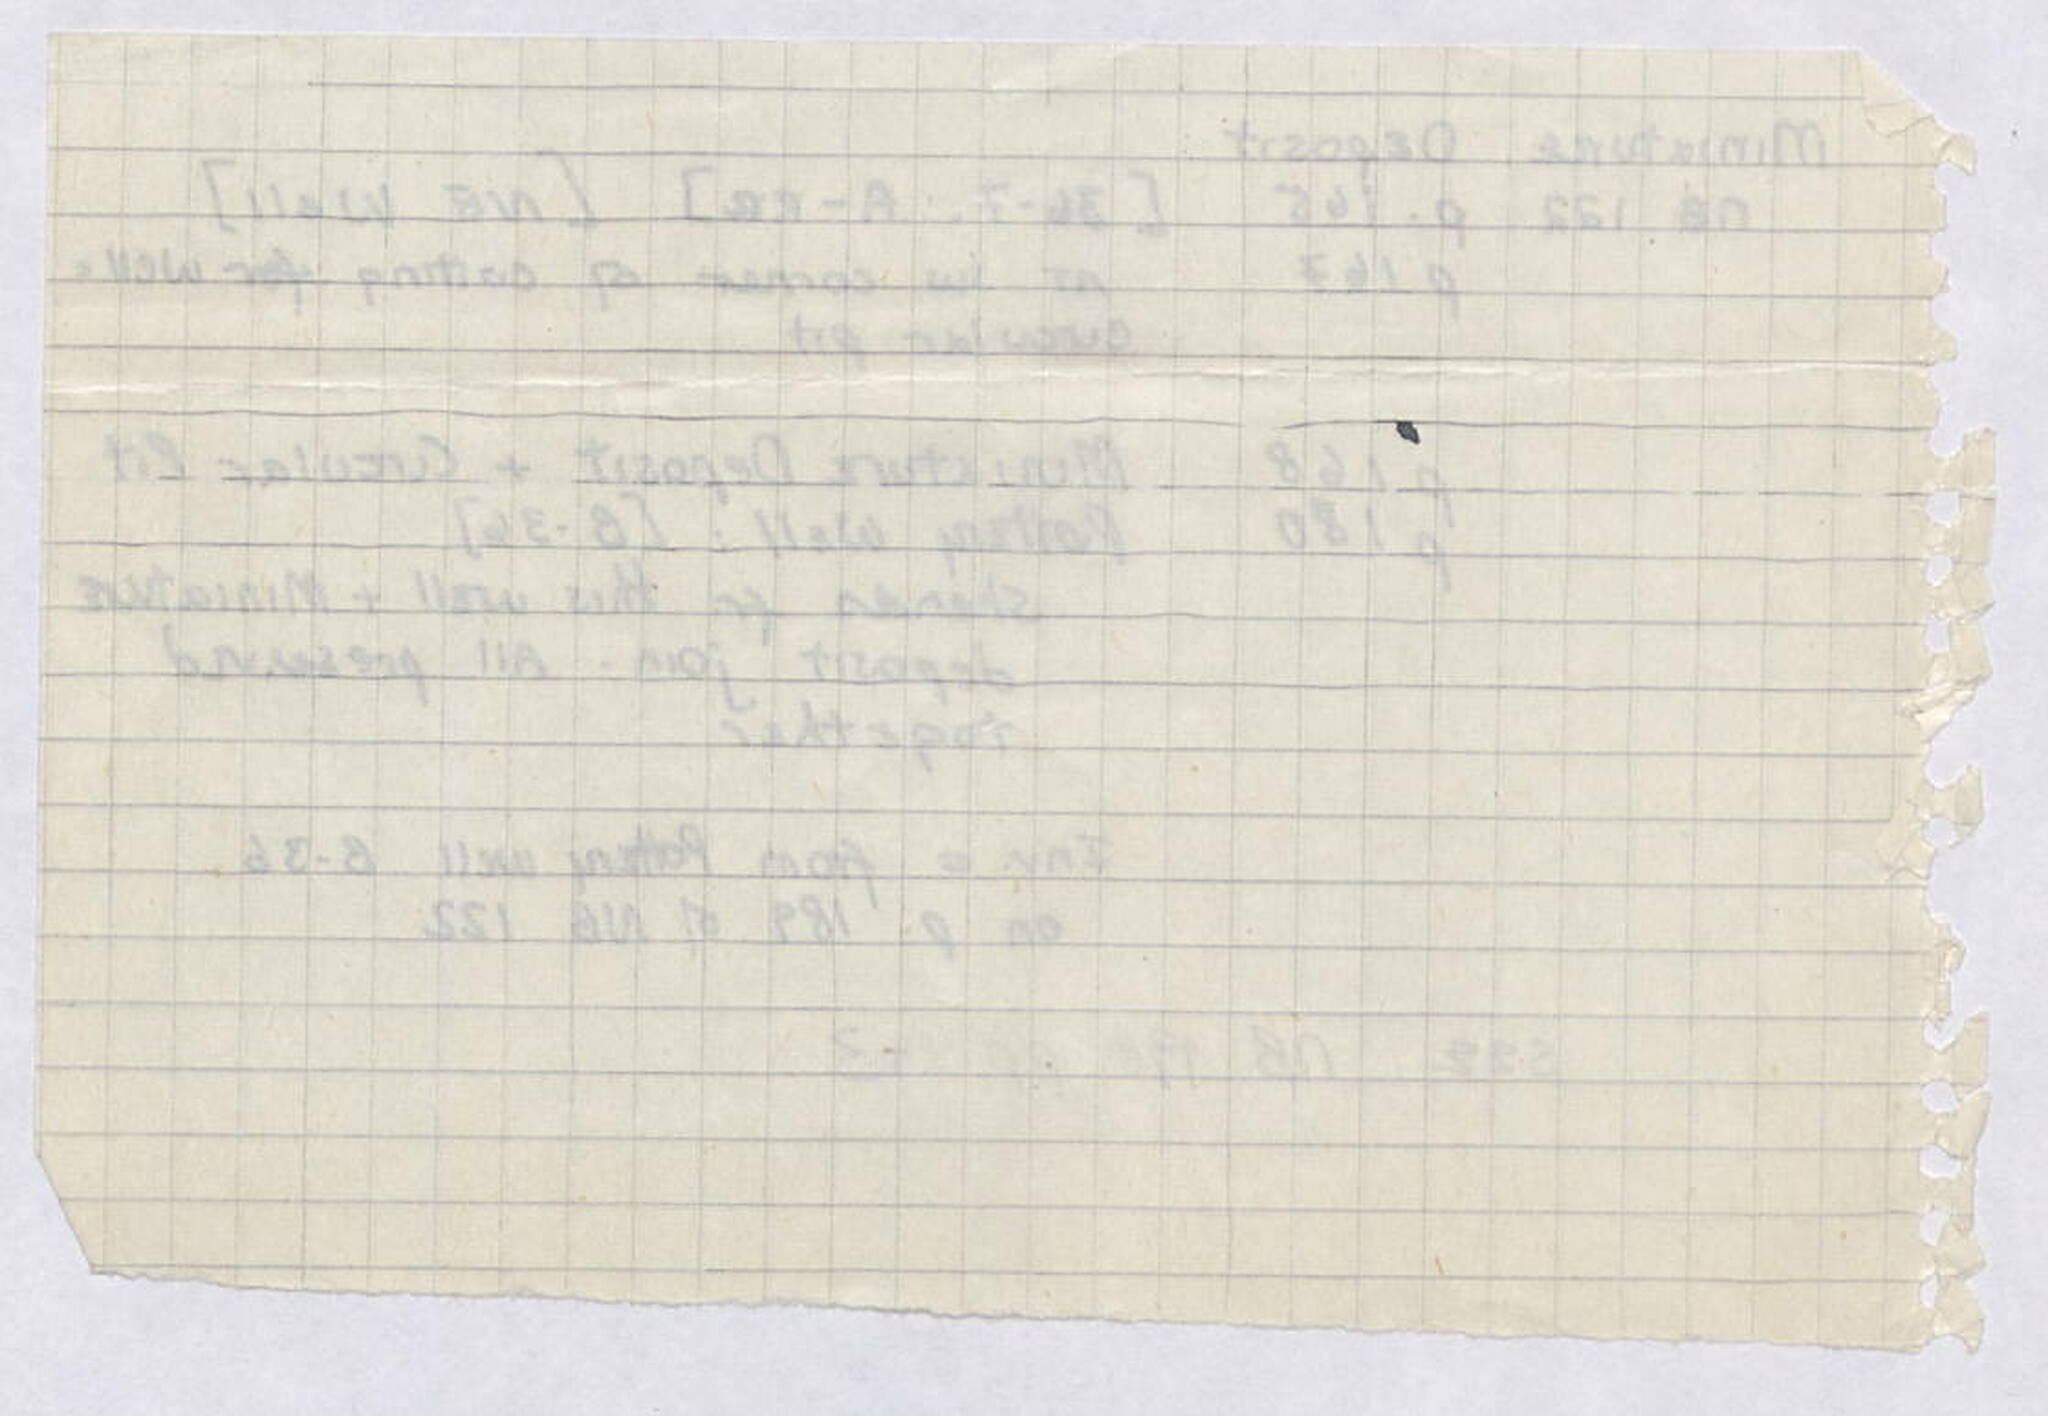 Miniature Deposit
NB 122 p. 165 [36-7: A-EB] [NE Well]
p 167 at NW corner of cutting for well =
circular pit
p 168 Miniature Deposit + Circular Pit
p 180 Pottery Well: [B-36]
sherds fr this well + Miniature
deposit join. All preserved
together
Inv = from Pottery well B-36
on p. 189 of NB 122
NB